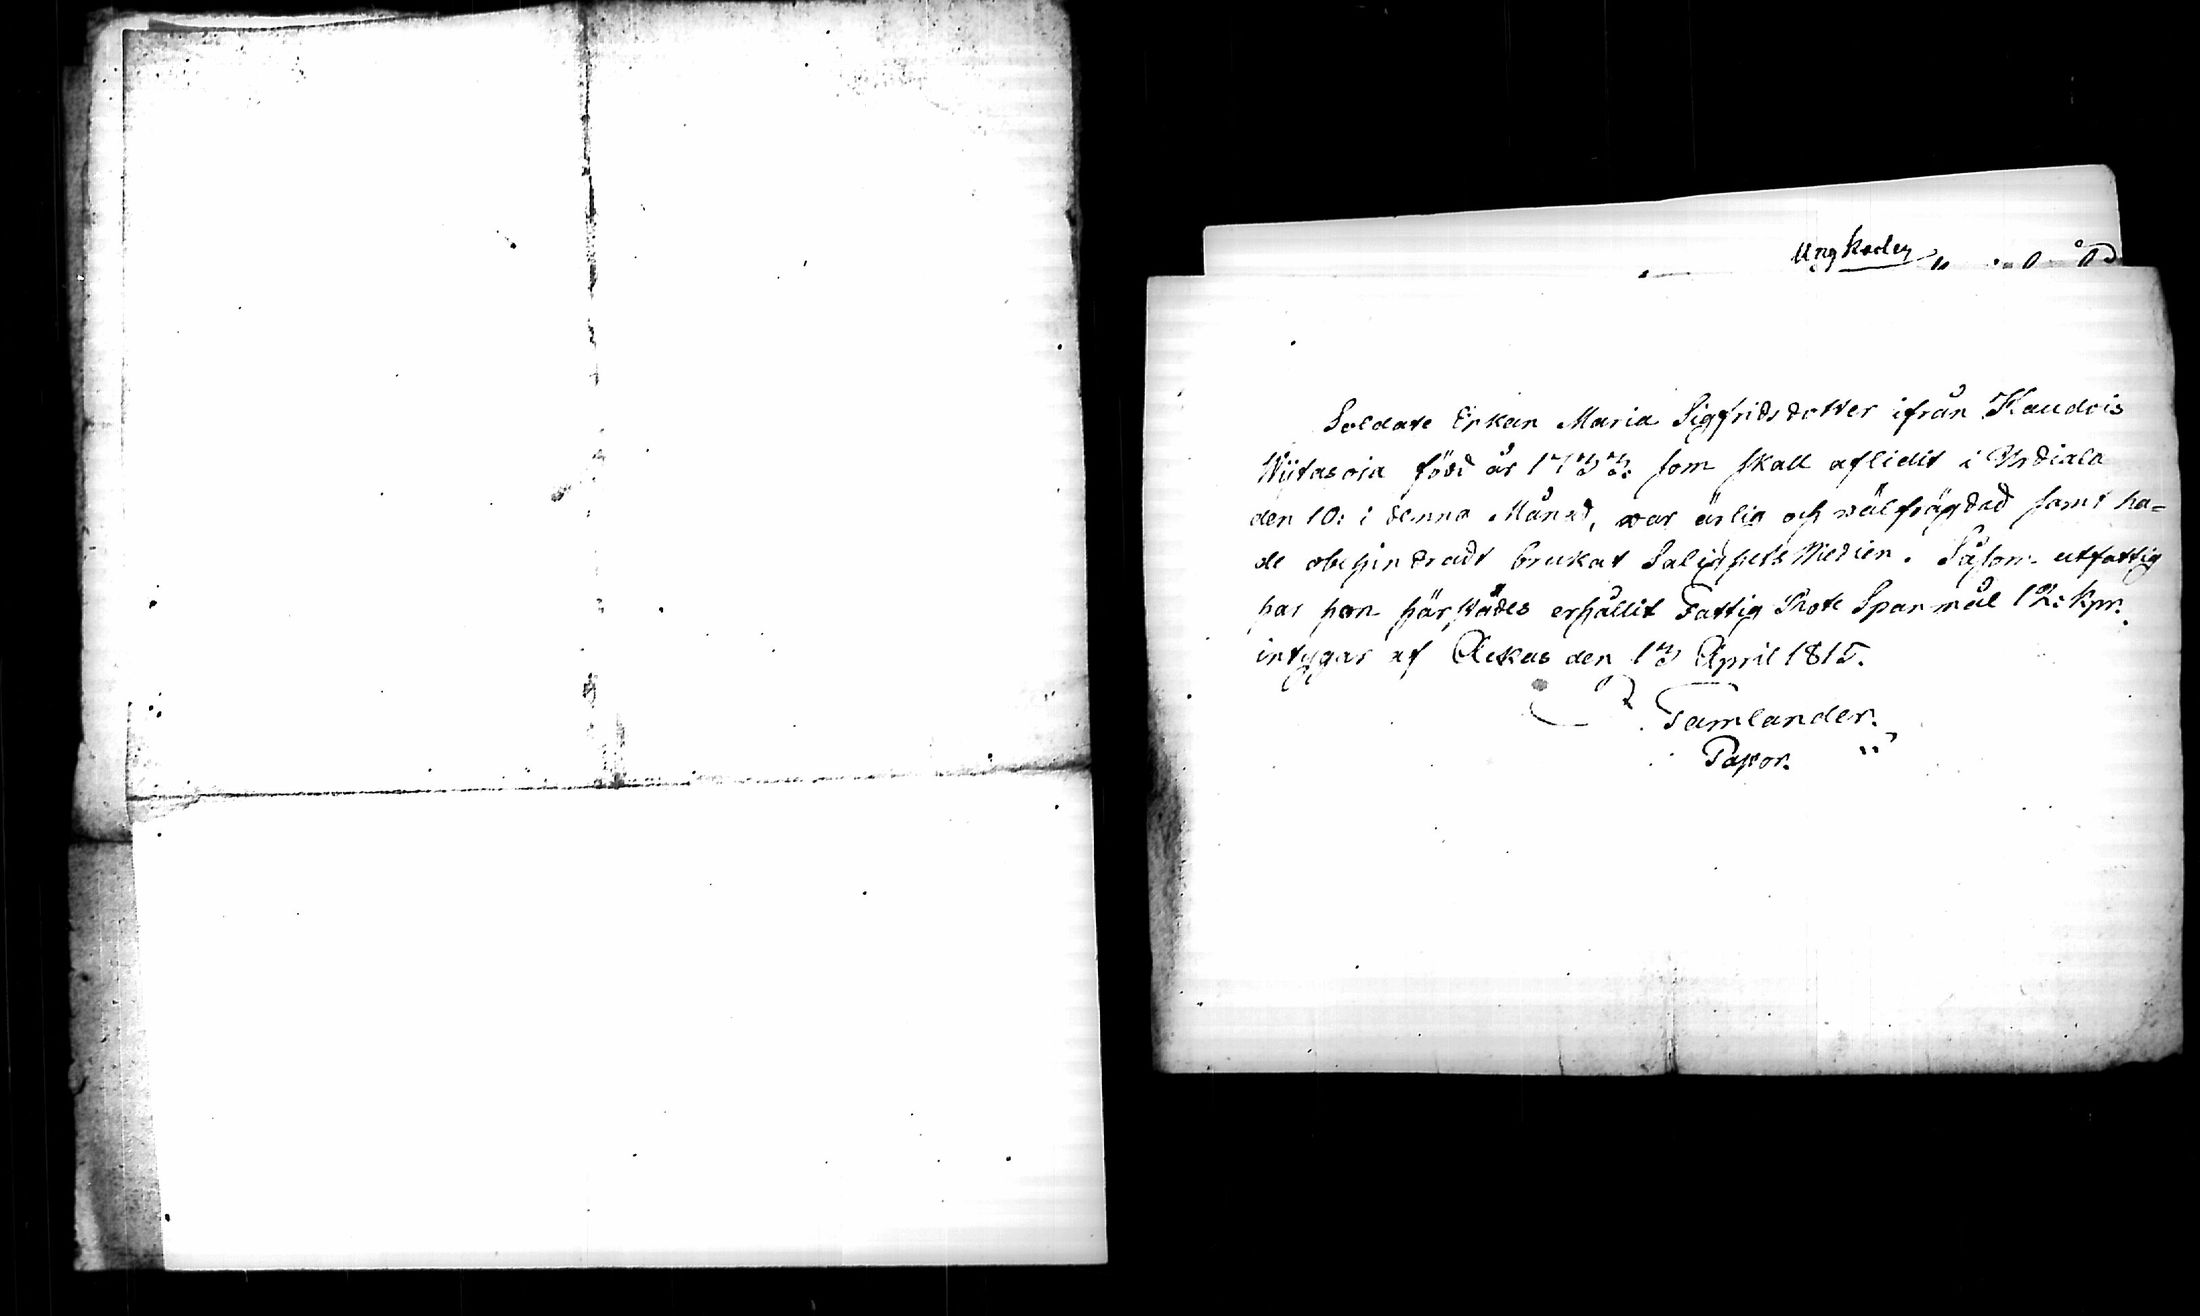 Ung
Soldate Enkan Maria Sigfridsdotter ifrån Kaudois
född år 1733. som skall aflidit i Urdiala
den 10: i denna Månad, war ärlig och wälfrägdad samt ha-
de obehindradt brukat Salighets Medlen. Såsom utfattig
har hon härstädes erhållit Fattig Rote Spanmål 12: kpr.
intygar af Ackas den 13 April 1815.
Tamlander.
Pastor.